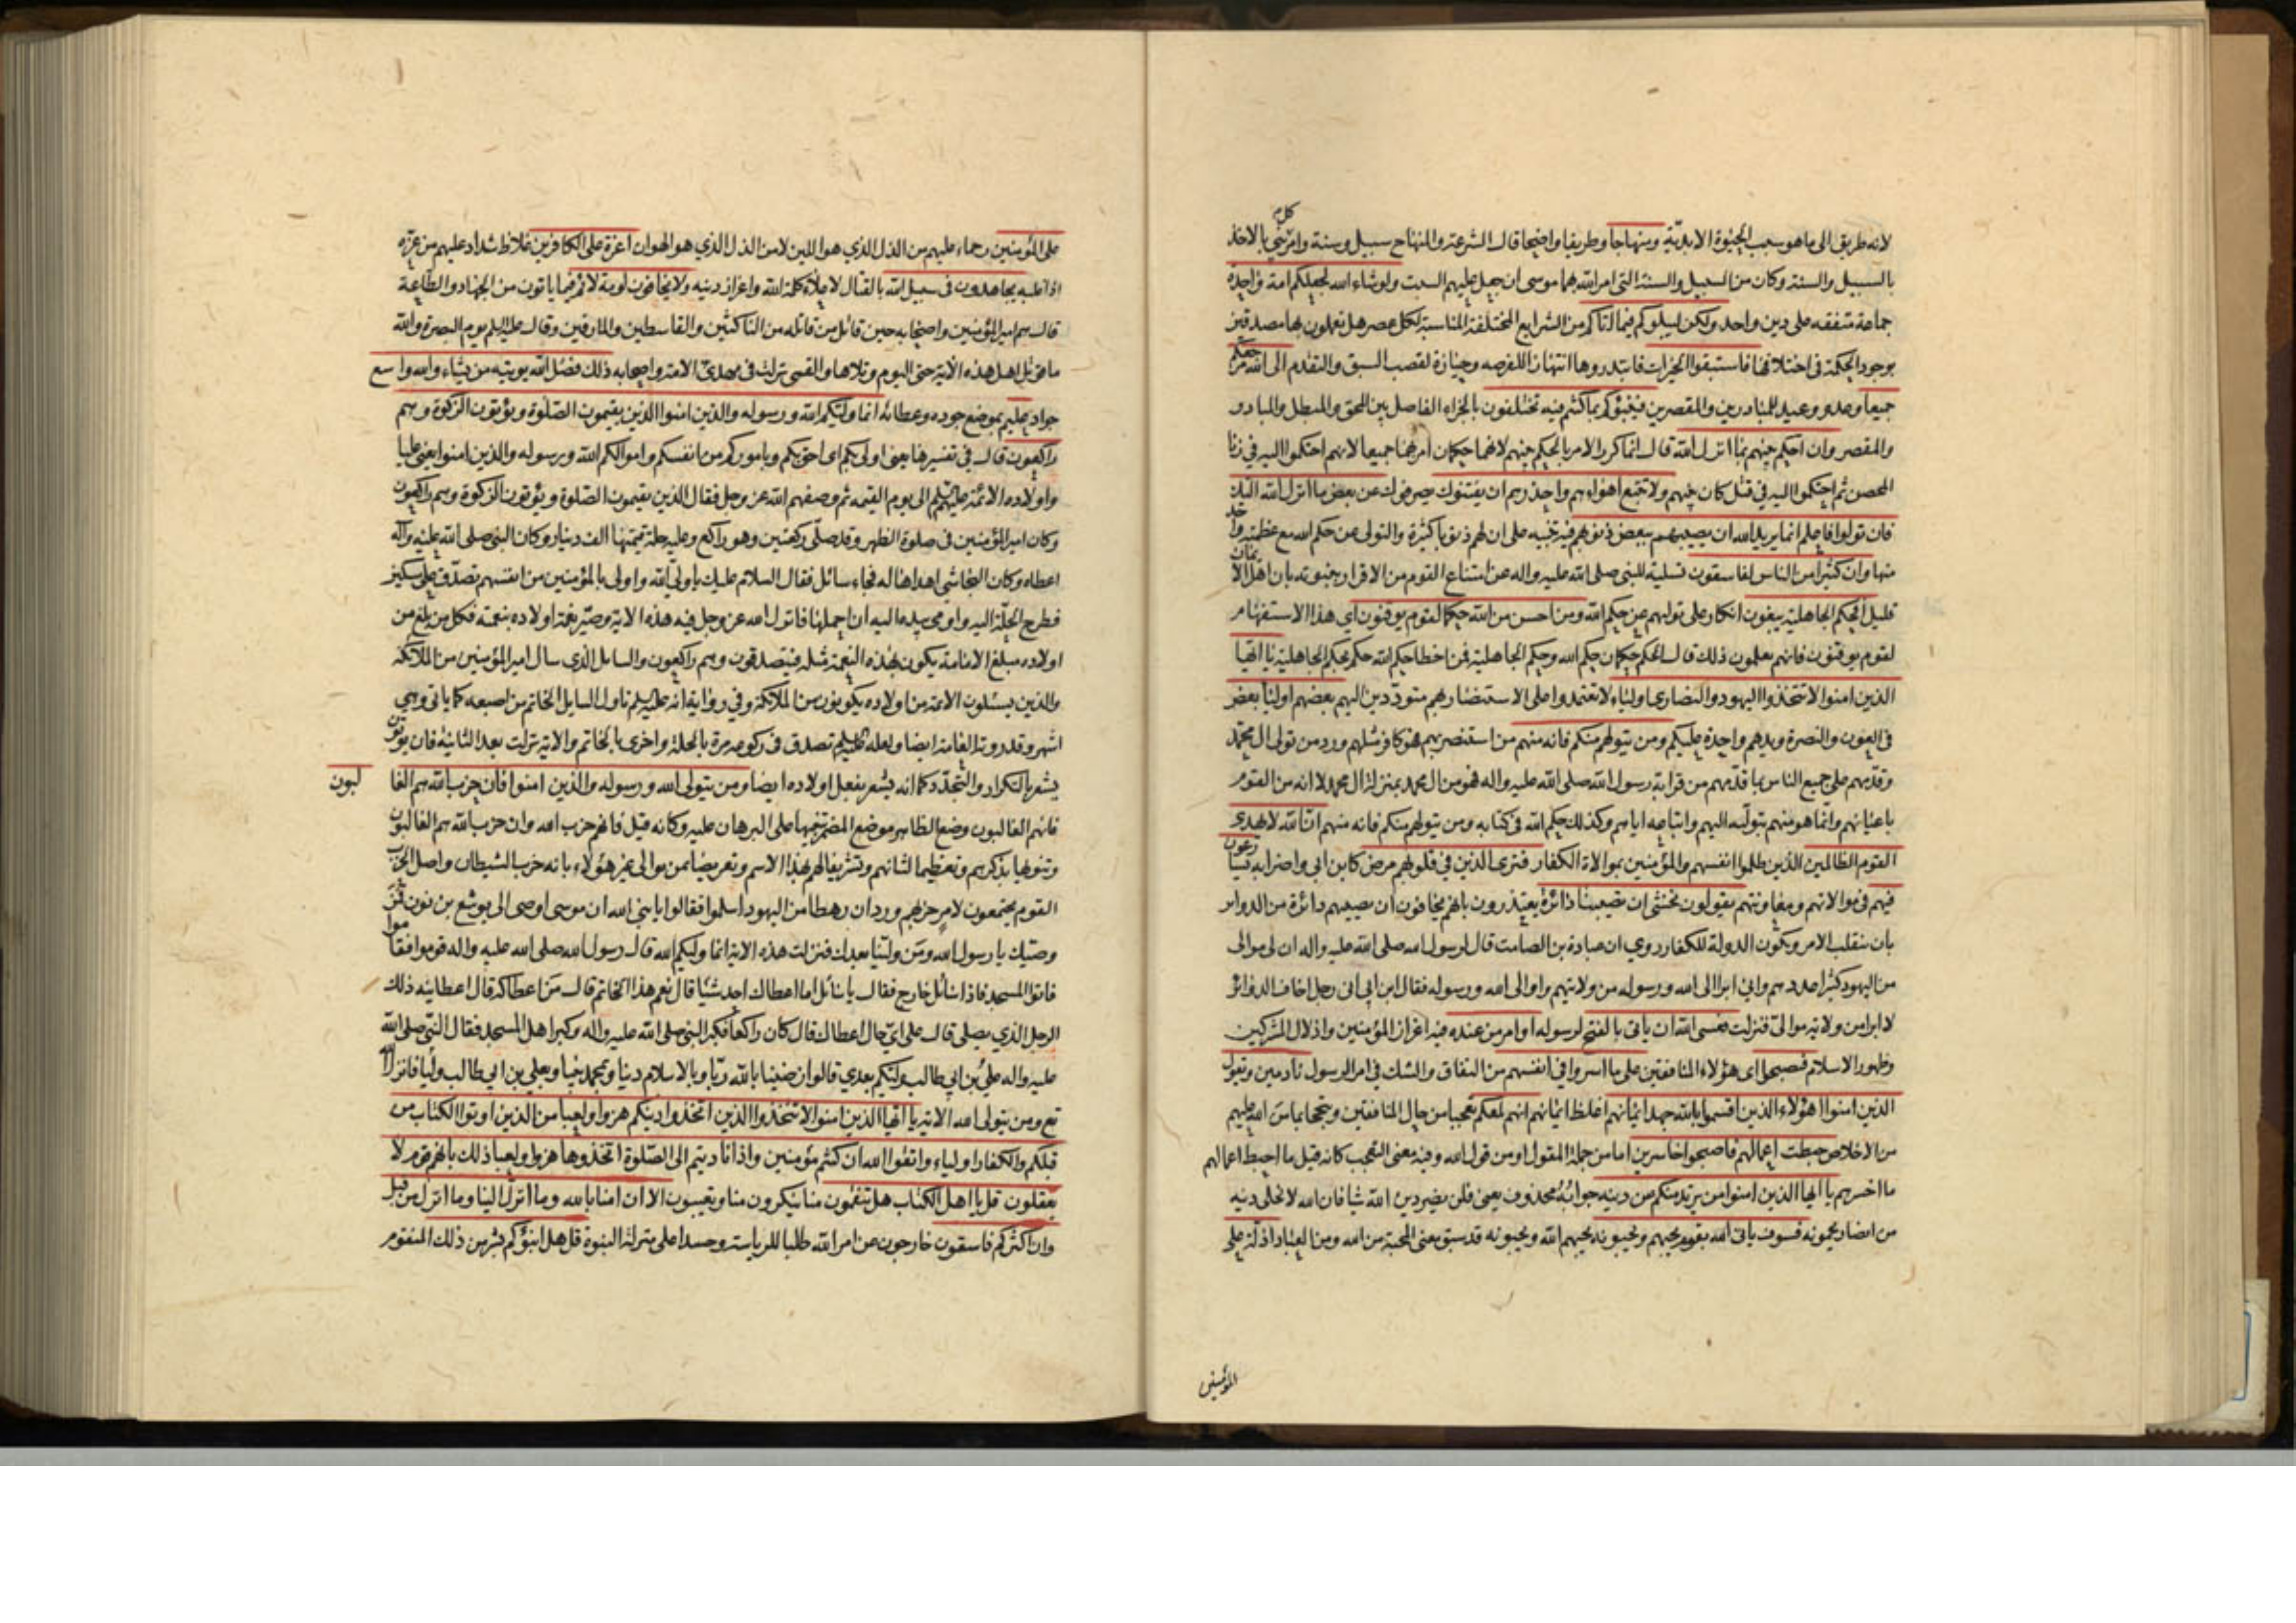 كل
لانه طريق الى ما هو سبب الحيوة الابدية ومنهاجا وطريقا واضحا قال الشرعة والمنهاج سبيل وسنة وامر نبي بالاخذ
بالسبيل والسنة وكان من السبيل والسنة التي امر الله بهما موسى ان جعل عليهم السبت ولو شاء الله لجعلكم امة واحدة
جماعة متفقه على دين واحد ولكن ليبلوكم فيما اتاكم من الشرايع المختلفة المناسبة لكل عصر هل تعملون بها مصدقين
بوجود الحكمة في اختلافها فاستبقوا الخيرات فابتدروها انتهازا للفرصه وحيازة لقصب السبق والتقدم الى الله مرجعكم
جميعا وعد ووعيد للمبادرين والمقصرين فينبئكم بما كنتم فيه تختلفون بالجزاء الفاصل بين المحق والمبطل والمبادر
والمقصر وان احكم بينهم بما انزل الله قال انما كرر الامر بالحكم بينهم لانهما حكمان امر بهما جميعا لانهم احتكموا اليه في زنا
المحصن ثم احتكموا اليه في قتل كان بينهم ولا تتبع اهواءهم واحذرهم ان يفتنوك يصرفوك عن بعض ما انزل الله اليك
فان تولوا فاعلم انما يريد الله ان يصيبهم ببعض ذنوبهم فيه تنبيه على ان لهم ذنوبا كثيرة والتولي عن حكم الله مع عظمته واحد
منها وان كثيرا من الناس لفاسقون تسلية للنبي صلى الله عليه واله عن امتناع القوم من الاقرار بنبوته بان اهل الايمان
قليل افحكم الجاهلية يبغون انكار على توليهم عن حكم الله ومن احسن من الله حكما لقوم يوقنون اي هذا الاستفهام
لقوم يوقنون فانهم يعلمون ذلك قال الحكم حكمان حكم الله وحكم الجاهلية فمن اخطا حكم الله حكم بحكم الجاهلية يا ايها
الذين امنوا لا تتخذوا اليهود والنصارى اولياء لا تعتمدوا على الاستنصار بهم متوددين اليهم بعضهم اولياء بعض
في العون والنصرة ويدهم واحدة عليكم ومن يتولهم منكم فانه منهم من استنصر بهم فهو كافر مثلهم ورد من تولى ال محمد
وقدمهم على جميع الناس بما قدمهم من قرابة رسول الله صلى الله عليه واله فهو من ال محمد بمنزلة ال محمد لا انه من القوم
باعيانهم وانما هو منهم بتوليه اليهم واتباعه اياهم وكذلك حكم الله في كتابه ومن يتولهم منكم فانه منهم ان الله لا يهدى
القوم الظالمين الذين ظلموا انفسهم والمؤمنين بموالاة الكفار فترى الذين في قلوبهم مرض كابن ابي واضرابه يسارعون
فيهم في موالاتهم ومعاونتهم يقولون نخشى ان تصيبنا دائرة يعتذرون بانهم يخافون ان تصيبهم دائرة من الدواير
بان ينقلب الامر ويكون الدولة للكفار روي ان عبادة بن الصامت قال لرسول الله صلى الله عليه واله ان لي موالى
من اليهود كثيرا عددهم واني ابرا الى الله ورسوله من ولايتهم واوالى الله ورسوله فقال ابن ابي انى رجل اخاف الدوائر
لا ابرا من ولاية موالي فنزلت فعسى الله ان ياتى بالفتح لرسوله او امر من عنده فيه اعزاز المؤمنين واذلال المشركين
وظهور الاسلام فيصبحوا اى هؤلاء المنافقين على ما اسروا في انفسهم من النفاق والشك في امر الرسول نادمين ويقول
الذين امنوا اهؤلاء الذين اقسموا بالله جهد ايمانهم اغلظ ايمانهم انهم لمعكم تعجبا من حال المنافقين وتبجحا بما من الله عليهم
من الاخلاص حبطت اعمالهم فاصبحوا خاسرين اما من جملة المقول او من قول الله وفيه معنى التعجب كانه قيل ما احبط اعمالهم
ما اخسرهم يا ايها الذين امنوا من يرتد منكم عن دينه جوابه محذوف يعني فلن يضر دين الله شيا فان الله لا يخلى دينه
من انصار يحمونه فسوف ياتى الله بقوم يحبهم ويحبونه يحبهم الله ويحبونه قد سبق معنى المحبة من الله ومن العباد اذلة على
المؤمنين
على المؤمنين رحماء عليهم من الذل الذي هو اللين لا من الذل الذي هو الهوان اعزة على الكافرين غلاظ شداد عليهم من عزه
اذا غلبه يجاهدون في سبيل الله بالقتال لاعلاء كلمة الله واعزاز دينه ولا يخافون لومة لائم فيما ياتون من الجهاد والطاعة
قال هم امير المؤمنين واصحابه حين قاتل من قاتله من الناكثين والقاسطين والمارقين وقال عليه السلم يوم البصرة والله
ما قوتل اهل هذه الاية حتى اليوم وتلاها والقمى نزلت في مهدي الامة واصحابه ذلك فضل الله يؤتيه من يشاء والله واسع
جواد عليم بموضع جوده وعطائه انما وليكم الله ورسوله والذين امنوا الذين يقيمون الصلوة ويؤتون الزكوة وهم
راكعون قال في تفسيرها يعنى اولى بكم اى احق بكم وباموركم من انفسكم واموالكم الله ورسوله والذين امنوا يعني عليا
واولاده الائمة عليهم السلم الى يوم القيمة ثم وصفهم الله عز وجل فقال الذين يقيمون الصلوة ويؤتون الزكوة وهم راكعون
وكان امير المؤمنين في صلوة الظهر وقد صلى ركعتين وهو راكع وعليه حلة قيمتها الف دينار وكان النبي صلى الله عليه وآله
اعطاه وكان النجاشي اهداها له فجاء سائل فقال السلام عليك يا ولي الله واولى بالمؤمنين من انفسهم تصدق على مسكين
فطرح الحلة اليه واومى بيده اليه ان احملها فانزل الله عز وجل فيه هذه الاية وصير نعمة اولاده بنعمته فكل من بلغ من
اولاده مبلغ الامامة يكون بهذه النعمة مثله فيتصدقون وهم راكعون والسايل الذي سال امير المؤمنين من الملائكة
والذين يسئلون الائمة من اولاده يكونون من الملائكة وفي رواية انه عليه السلم ناول السايل الخاتم من اصبعه كما ياتى وهي
اشهر وقد روتها العامة ايضا ولعله عليه السلم تصدق في ركوعه مرة بالحلة واخرى بالخاتم والاية نزلت بعد الثانية فان يؤتون
يشعر بالتكرار والتجدد كما انه يشعر بفعل اولاده ايضا ومن يتولى الله ورسوله والذين امنوا فان حزب الله هم الغالبون
فانهم الغالبون وضع الظاهر موضع المضمر تنبيها على البرهان عليه وكانه قيل فانهم حزب الله وان حزب الله هم الغالبون
وتنويها بذكرهم وتعظيما لشانهم وتشريفا لهم بهذا الاسم وتعريضا بمن يوالى غير هؤلاء بانه حزب الشيطان واصل الحزب
القوم يجتمعون لامر حزبهم ورد ان رهطا من اليهود اسلموا فقالوا يا نبى الله ان موسى اوصى الى يوشع بن نون فمن
وصيك يا رسول الله ومن ولينا بعدك فنزلت هذه الاية انما وليكم الله قال رسول الله صلى الله عليه واله قوموا فقاموا
فاتوا المسجد فاذا سائل خارج فقال يا سائل اما اعطاك احد شيئا قال نعم هذا الخاتم قال من اعطاكه قال اعطانيه ذلك
الرجل الذي يصلي قال على اي حال اعطاك قال كان راكعا فكبر النبي صلى الله عليه واله وكبر اهل المسجد فقال النبي صلى الله
عليه واله علي بن ابي طالب وليكم بعدي قالوا رضينا بالله ربا وبالاسلام دينا وبمحمد نبيا وبعلي بن ابي طالب وليا فانزل الله
تع ومن يتولى الله الاية يا ايها الذين امنوا لا تتخذوا الذين اتخذوا دينكم هزوا ولعبا من الذين اوتوا الكتاب من
قبلكم والكفار اولياء واتقوا الله ان كنتم مؤمنين واذا ناديتم الى الصلوة اتخذوها هزوا ولعبا ذلك بانهم قوم لا
يعقلون قل يا اهل الكتاب هل تنقمون منا تنكرون منا وتعيبون الا ان امنا بالله وما انزل الينا وما انزل من قبل
وان اكثركم فاسقون خارجون عن امر الله طلبا للرياسة وحسدا على منزلة النبوة قل هل انبؤكم بشر من ذلك المنقوم